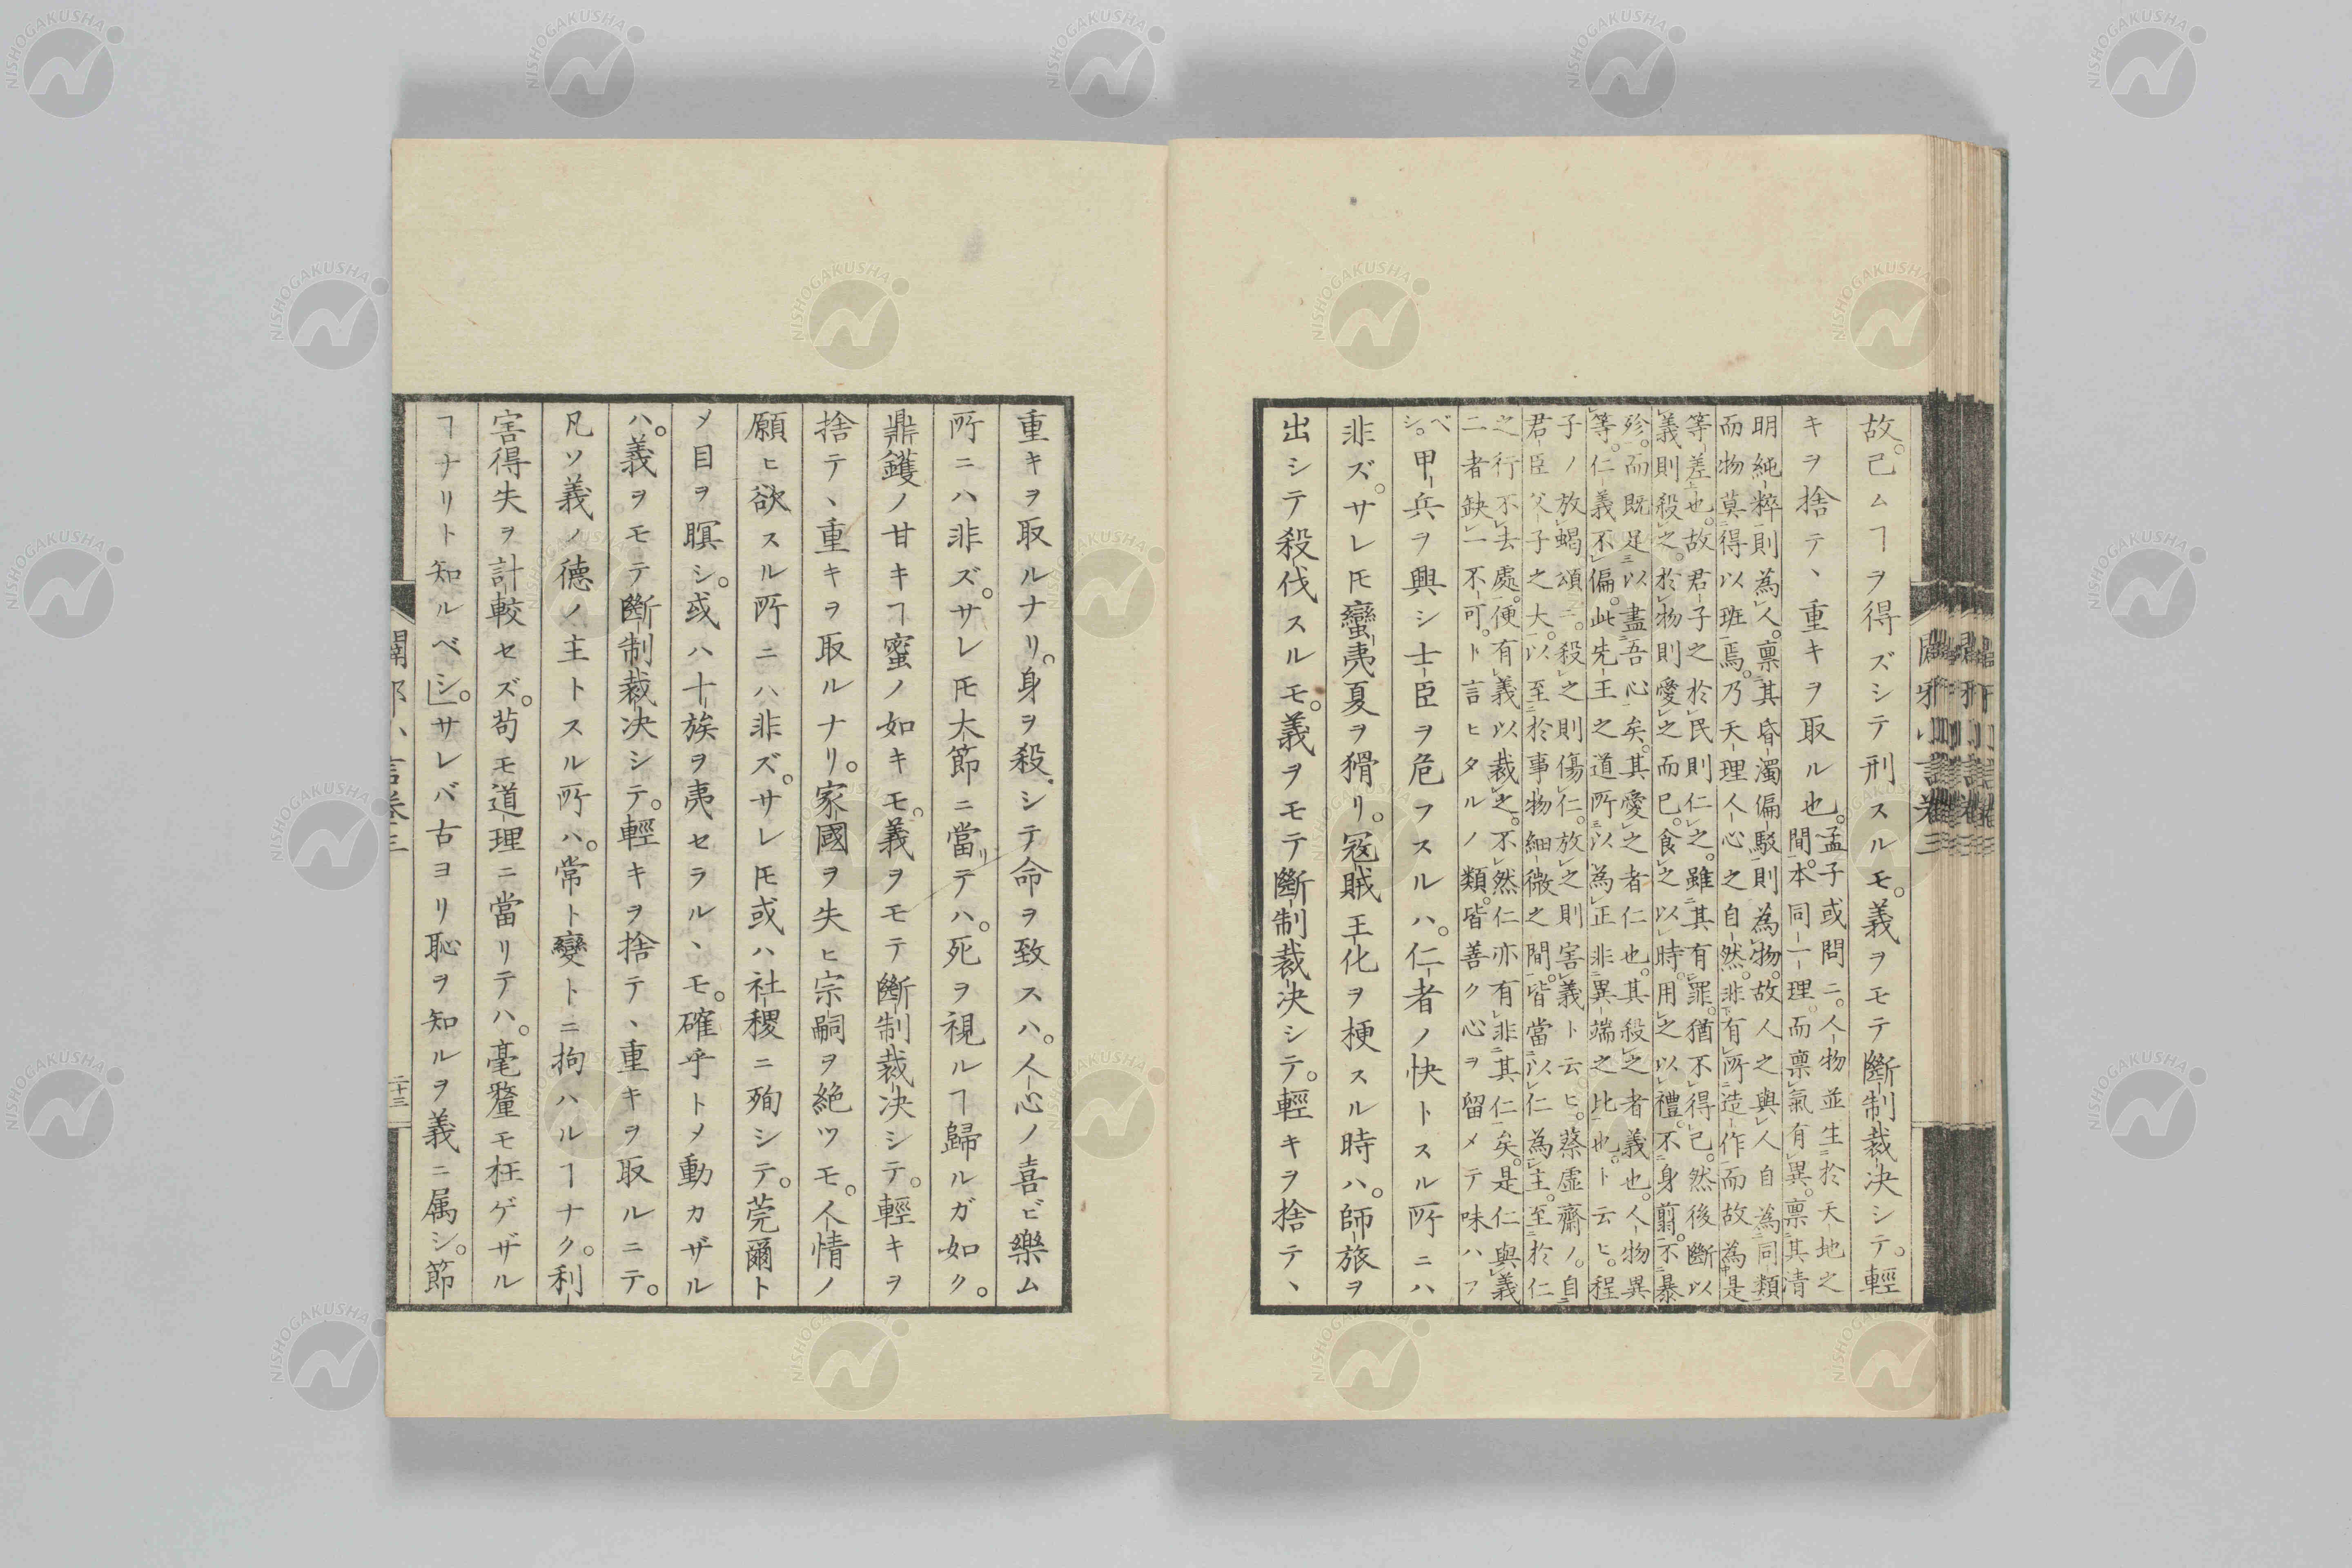 故。已ムヿヲ得ズシテ刑スルモ。義ヲモテ斷制裁决シテ。輕
キヲ捨テヽ重キヲ取ル也。
孟子或問ニ。人物並生於天地之
間。本同一理。而禀氣有異。禀其清
明純粹則為人。禀其昏濁偏駁則為物。故人之與人自為同類
而物莫得以班焉。乃天理人心之自然。非有所造作而故為是
等差也。故君子之於民則仁之。雖其有罪。猶不得已。然後斷以
義則殺之。於物則愛之而已。食之以時。用之以禮。不身翦。不暴
殄。而既足以盡吾心矣。其愛之者仁也。其殺之者義也。人物異
等。仁義不偏。此先王之道所以為正非異端之比也。ト云ヒ。程
子ノ放蝎頌ニ。殺之則傷仁。放之則害義ト云ヒ。蔡虚齋ノ。自
君臣父子之大。以至於事物細微之間。皆當以仁為主。至於仁
之行不去處。便有義以裁之。不然仁亦有非其仁矣。是仁與義
二者缺一不可。ト言ヒタルノ類。皆善ク心ヲ留メテ味ハフ
ベシ。
甲兵ヲ興シ士臣ヲ危フスルハ。仁者ノ快トスル所ニハ
非ズ。サレ𪜈蠻夷夏ヲ猾リ。冦賊王化ヲ梗スル時ハ。師旅ヲ
出シテ殺伐スルモ。義ヲモテ斷制裁决シテ。輕キヲ捨テヽ
重キヲ取ルナリ。身ヲ殺シテ命ヲ致スハ。人心ノ喜ビ樂ム
所ニハ非ズ。サレ𪜈大節ニ當リテハ。死ヲ視ルヿ歸ルガ如ク。
鼎鑊ノ甘キヿ蜜ノ如キモ。義ヲモテ斷制裁决シテ。輕キヲ
捨テヽ重キヲ取ルナリ。家國ヲ失ヒ宗嗣ヲ絶ツモ。人情ノ
願ヒ欲スル所ニハ非ズ。サレ𪜈或ハ社稷ニ殉シテ。莞爾ト
メ目ヲ瞑シ。或ハ十族ヲ夷セラルヽモ。確乎トメ動カザル
ハ。義ヲモテ斷制裁决シテ。輕キヲ捨テヽ重キヲ取ルニテ。
凡ソ義ノ德ノ主トスル所ハ。常ト變トニ拘ハルヿナク。利
害得失ヲ計較セズ。苟モ道理ニ當リテハ。毫釐モ枉ゲザル
ヿナリト知ルベシ。サレバ古ヨリ恥ヲ知ルヲ義ニ属シ。節
二十三